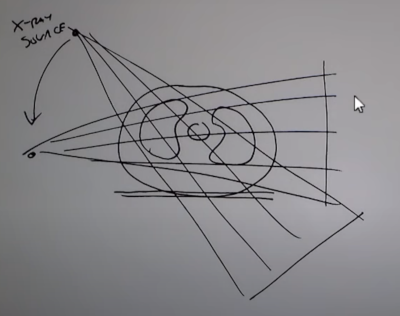 X-RAY
SOURCE